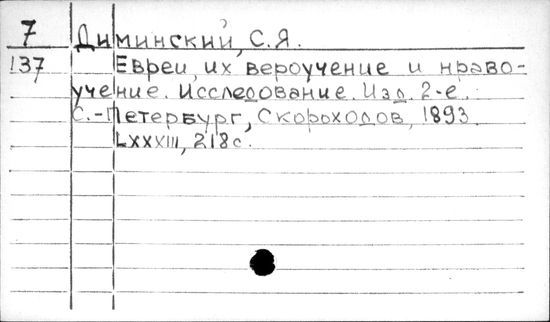 7 Диминский, С.Я.
137 Евреи, их вероучение и нраво-
учение. Исследование. Изд. 2-е.
С.-Петербург, Скороходов, 1893.
LXXXIII, 218с.